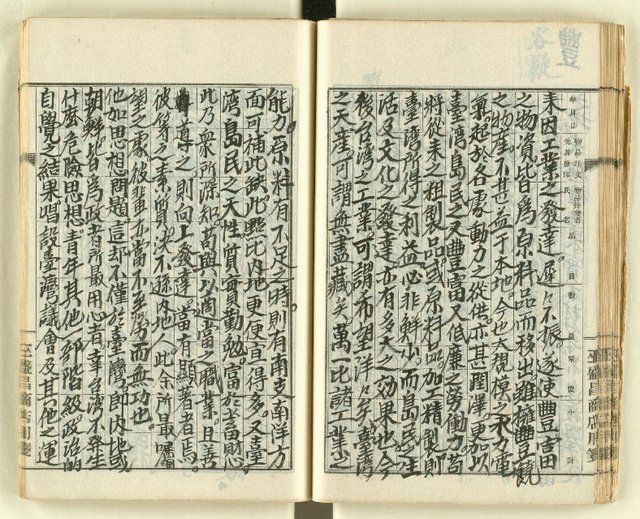 來因工業之發達。遲々不振。遂使豐富
之物資。皆為原料品而移出。雖擁豐饒
之物產。不甚益于本地。今也大規模之水力電
氣。起於各處。動力之從供。亦甚潤澤。更加以
臺灣島民之又豐富又低廉之勞動力。苟
將從來之粗製品或原料品。加工精製。則
臺灣所得之利益。必非鮮少。而島民也。今
活及文化之發達。亦有多大之効果也。今
後台灣之工業。可謂希望洋々乎。臺灣
之天產。可謂無盡藏矣。萬一比諸工業之
能力。原料有不足之時。則有南支南洋方
面可補此缺。此點比內地更便宜得多。又臺
灣島民之天性。質實勤勉。富於蓄財心。
此乃衆所深知。苟與以適當之職業。且善
導之。則向上發達。當有顯著者焉。
彼等之素質。決不遜內地人。此余所最囑
望之處。彼輩亦當不至勞而無功也。
他如思想問題。這却不僅於臺灣。即內地或
朝鮮。皆為政者所最用心者。幸台灣不發生
什麼危險思想。青年其他一部階級。政治的
自覺之結果。唱設臺灣議會。及其他之運
年月日